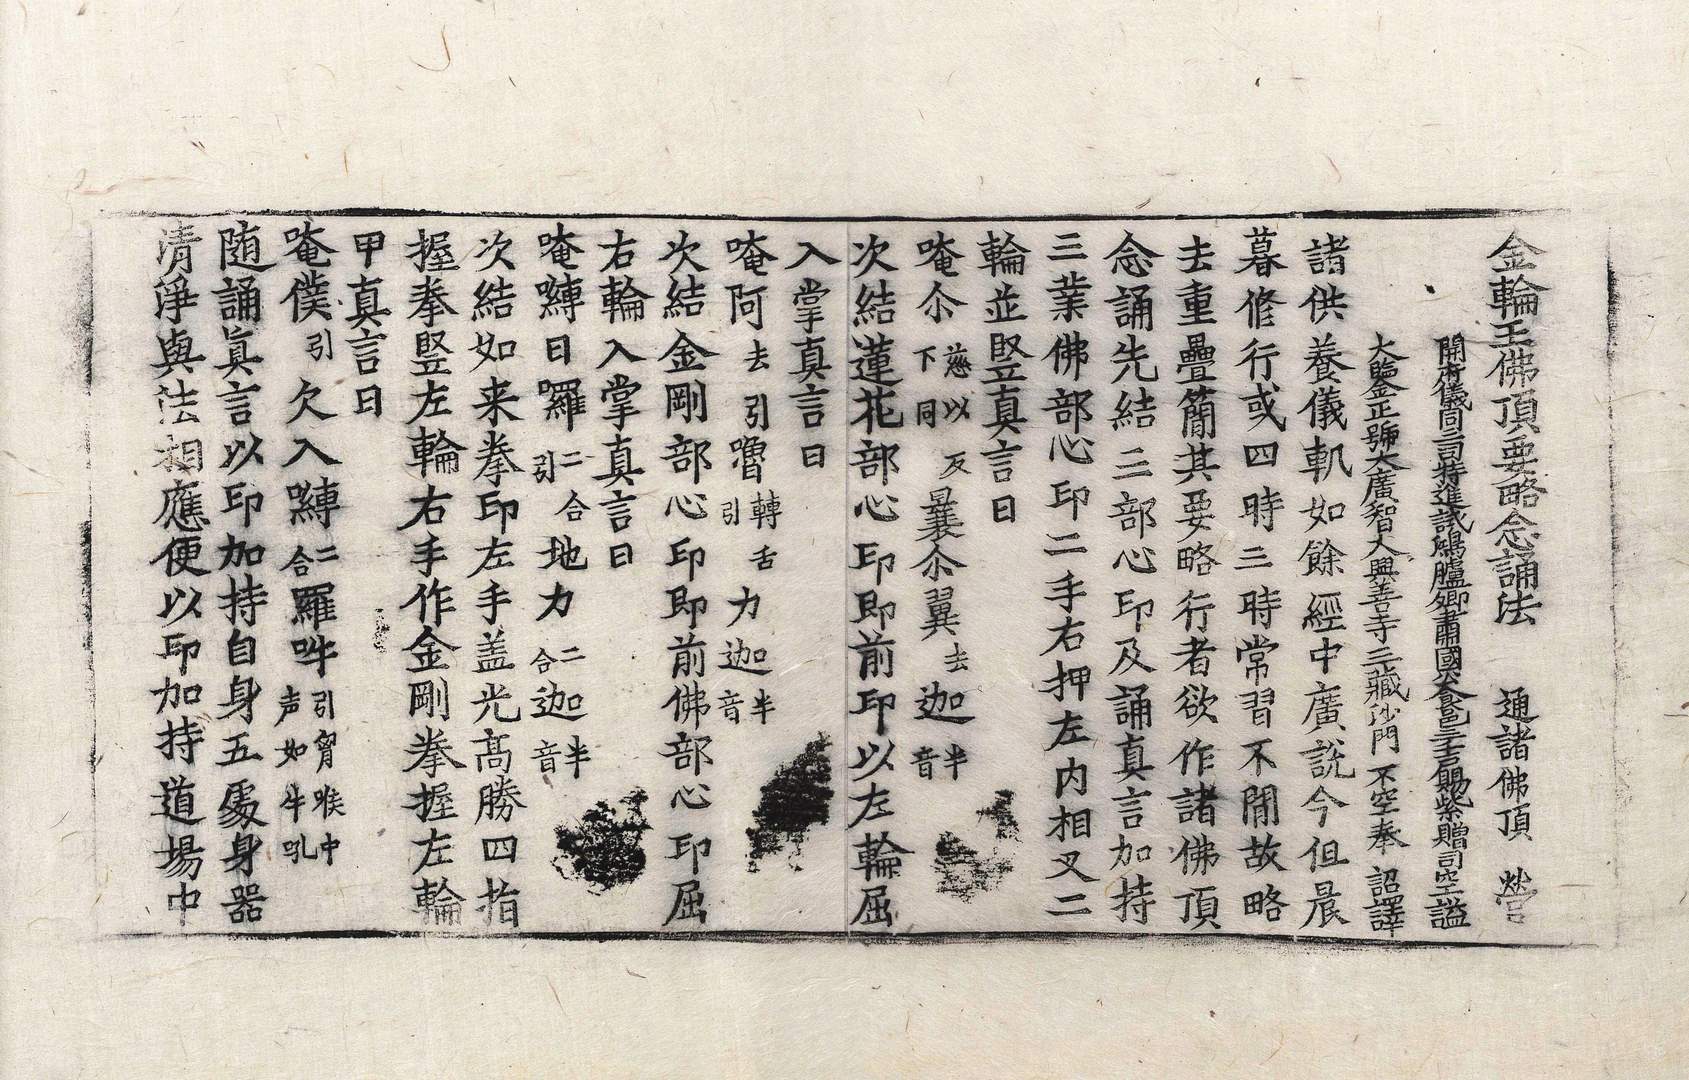 金輪王佛頂要略念誦法　通諸佛頂　營
開府儀同三司特進試鴻臚卿肅國公食邑三千戶賜紫贈司空謚
大鑑正號大廣智大興善寺三藏沙門不空奉　詔譯
諸供養儀軌如餘經中廣說今但晨
暮修行或四時三時常習不閒故略
去重疊簡其要略行者欲作諸佛頂
念誦先結三部心印及誦真言加持
三業佛部心印二手右押左內相叉二
輪並竪真言曰
唵尒慈以反下同曩尒翼去迦半音
次結蓮花部心印即前印以左輪屈
入掌真言曰
唵阿去引嚕轉舌引力迦半音
次結金剛部心印即前佛部心印屈
右輪入掌真言曰
唵嚩日羅二合引地力二合迦半音
次結如来拳印左手盖光高勝四指
握拳竪左輪右手作金剛拳握左輪
甲真言曰
唵僕引欠入嚩二合羅吽引胷喉中声如牛吼
随誦真言以印加持自身五處身器
清淨與法相應便以印加持道場中